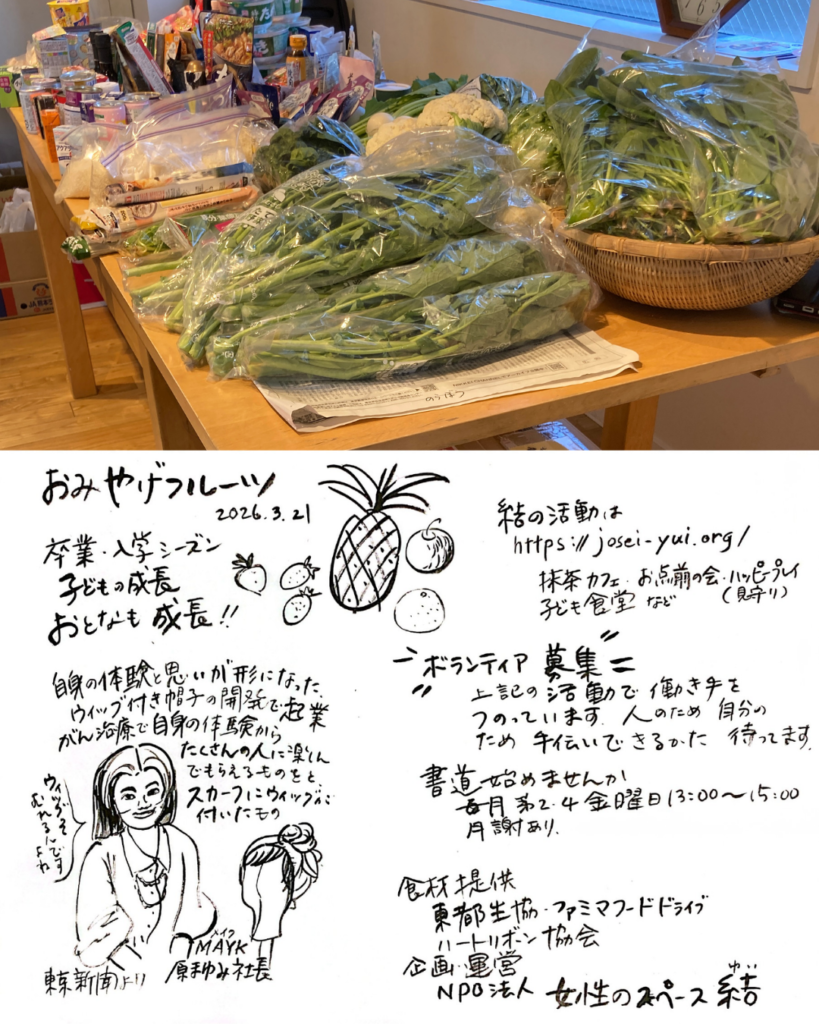 おみやげフルーツ
2026.3.21
卒業・入学シーズン
子どもの成長
おとなも 成長!!
自身の体験と思いが形になった、
ウィッグ付き帽子の開発で起業
がん治療で自身の体験から
たくさんの人に楽しん
でもらえるものをと、
スカーフにウィッグが
付いたもの
ウィッグってむれるんですよね
MAYK
メイク
東京新聞より
原まゆみ社長
結の活動は
https://josei-yui.org/
抹茶カフェ・お点前の会・ハッピープレイ
(見守り)
子ども食堂 など
ボランティア 募集
上記の活動で 働き手を
つのっています。人のため 自分の
ため 手伝いできるかた 待ってます。
書道始めませんか
毎月 第2.4 金曜日 13:00〜15:00
月謝あり.
食材提供
東都生協・ファミマフードドライブ
ハートリボン協会
企画・運営
NPO法人 女性のスペース 結
ゆい